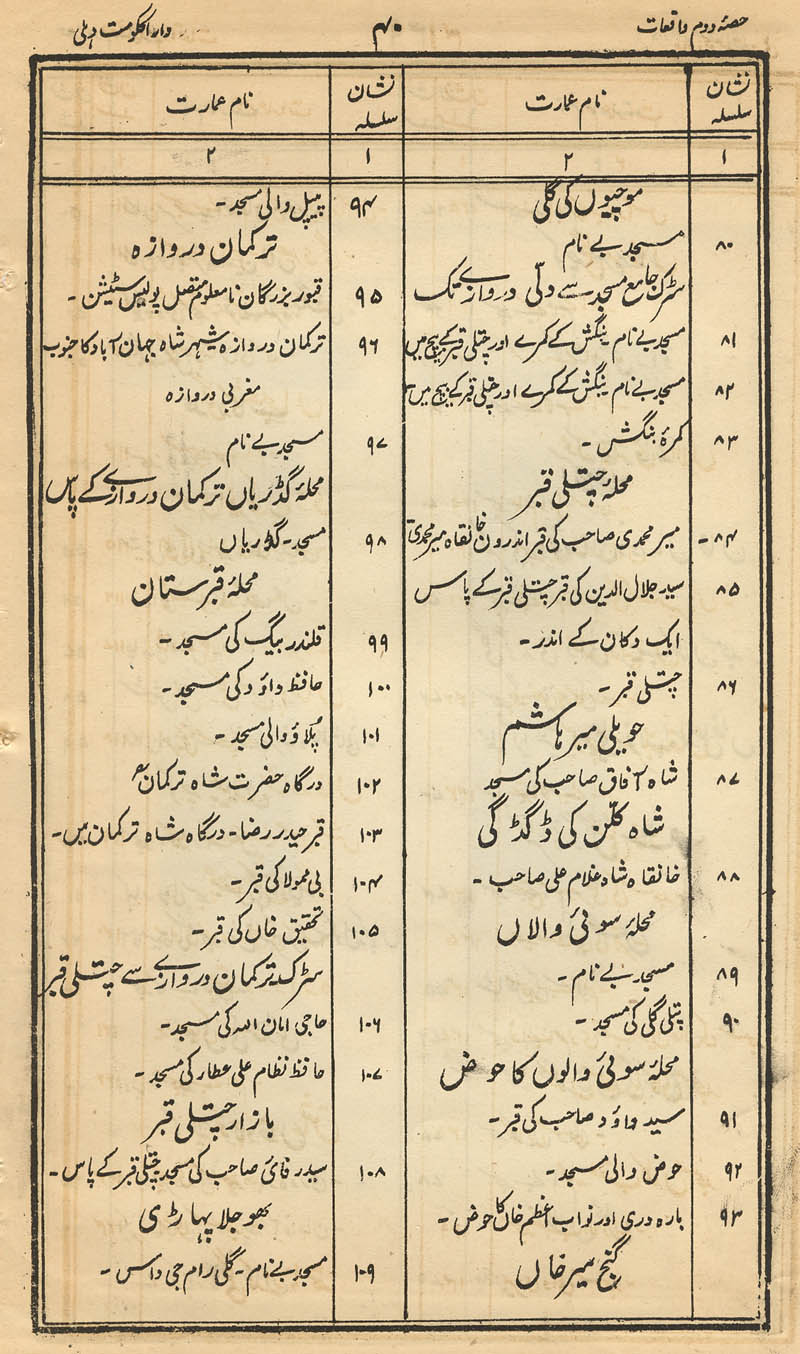 حصۂ دوم واقعات
۴۰
دارالحکومت دہلی
نشان سلسلہ
نام عمارت
نشان سلسلہ
نام عمارت
۱
۲
۱
۲
موچیوں کی گلی
۸۰ مسجد بے نام
سڑک جامع مسجد سے دلّی دروازے تک
۸۱ مسجد بے نام بنگش کے کمرے اور چتلی قبر کے بیچ میں
۸۲ مسجد بے نام بنگش کے کمرے اور چتلی قبر کے بیچ میں
۸۳ کمرۂ بنگش۔
محلہ چتلی قبر
۸۴۔ میر محمدی صاحب کی قبر اندرون خانقاہ میر محمدی
۸۵ سید جلال الدین کی قبر چتلی قبر کے پاس
ایک دکان کے اندر۔
۸۶ چتلی قبر۔
حویلی میر ہاشم
۸۷ شاہ آفاق صاحب کی مسجد
شاہ کلّن کی ڈگڈگی
۸۸ خانقاہ شاہ غلام علی صاحب۔
محلہ سوئی والاں
۸۹ مسجد بے نام۔
۹۰ پتلی گلی کی مسجد۔
محلہ سوئی والوں کا حوض
۹۱ سید داؤد صاحب کی قبر۔
۹۲ حوض والی مسجد۔
۹۳ بارہ دری اور نواب اعظم خاں کا حوض۔
گنج میر خاں
۹۴ پیپل والی مسجد۔
ترکمان دروازہ
۹۵ قبور بزرگان نامعلوم متصل پولیس سٹیشن۔
۹۶ ترکمان دروازہ شہر شاہ جہان آباد کا جنوب
مغربی دروازہ
۹۷ مسجد بے نام
محلہ گڈریاں ترکمان دروازے کے پاس
۹۸ مسجد۔ گڈریاں
محلہ قبرستان
۹۹ قلندر بیگ کی مسجد۔
۱۰۰ حافظ داؤد کی مسجد۔
۱۰۱ پُلاؤ والی مسجد۔
۱۰۲ درگاہ حضرت شاہ ترکمانؒ
۱۰۳ قبر حیدر رضا۔ درگاہ شاہ ترکمان میں۔
۱۰۴ بی ممولا کی قبر۔
۱۰۵ تحقیق خاں کی قبر۔
سڑک ترکمان دروازے سے چتلی قبر
۱۰۶ حاجی امان اللہ کی مسجد۔
۱۰۷ حافظ نظام علی عطار کی مسجد۔
بازار چتلی قبر
۱۰۸ سید رفاعی صاحب کی مسجد چتلی قبر کے پاس۔
بھوجلا پہاڑی
۱۰۹ مسجد بے نام۔ گلی رام جی داس۔